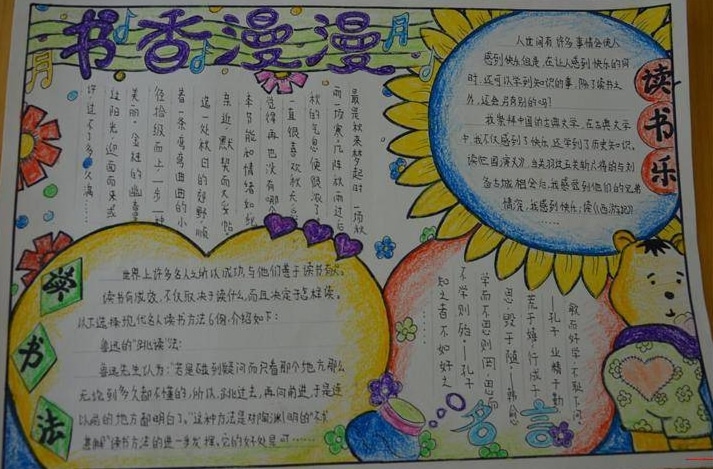 书香漫漫
最是秋来梦起时，一场秋
雨一场寒，几阵秋雨过后，
秋的气息便假浓了
一直很喜欢秋天
觉得再也没有哪个
季节能和情绪如此
亲近，默契而又妥帖。
选一处秋日的郊野，顺
着一条弯弯曲曲的小
径拾级而上，一步一
美丽，金桂的幽香
过阳光，迎面而来
许过不了多久满……
人世间有许多事情会使人
感到快乐但是，在让人感到快乐的同
时，还可以学到知识的事，除了读书之
外，还会另有别的吗？
我崇拜中国的古典文学，在古典文学
中，我不仅感到了快乐，还学到了历史知识。
读《三国演义》，当关羽过五关斩六将的与刘
备古城相会后，我感觉到他们的兄弟
情深，我感到快乐；读《西游记》
……
读书乐
学书法
世界上许多名人之所以成功与他们善于读书有关。
读书有成效，不仅取决于读什么，而且决定于怎样读。
以下选择现代名人读书方法6例，介绍如下：
鲁迅的“跳读”法：
鲁迅先生认为：“若是碰到疑问而只看那个地方，那么
无论到多久都不懂的，所以，跳过去，再向前进，于是连
以前的地方都明白了。”这种方法是对陶渊明的“不求
甚解”读书方法的进一步发挥。它的好处是可……
敏而好学，不耻下问。
——孔子 业精于勤，
荒于嬉；行成于
思，毁于随。——韩愈
学而不思则罔，思
不学则殆。——孔子
知之者不如好之
……
名言